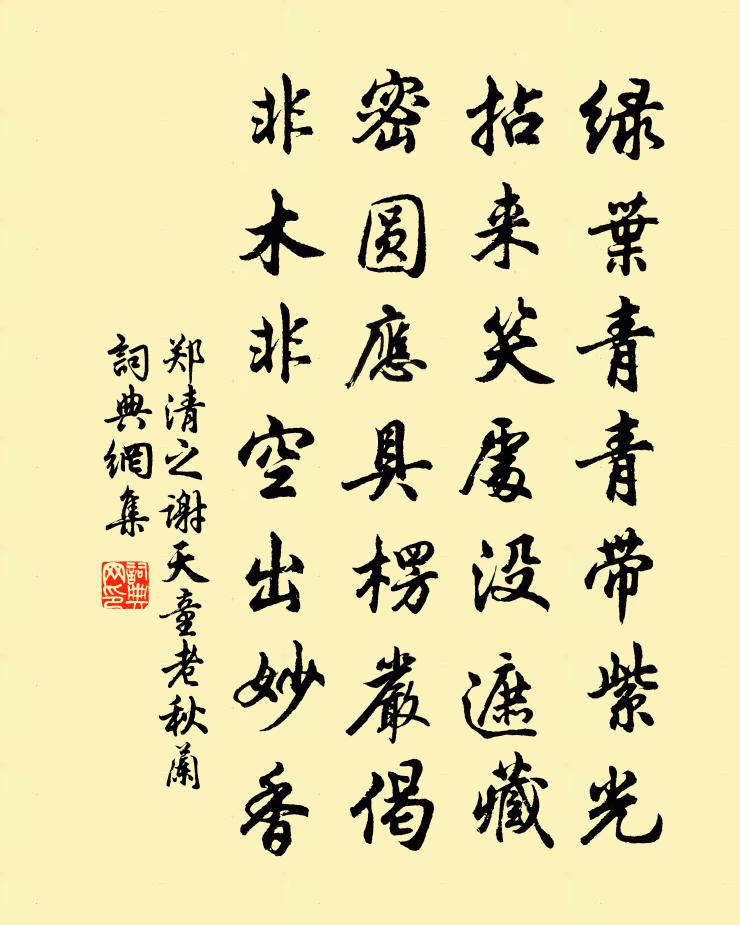 绿葉青青带紫光
拈来笑處没遮藏
密圓應具楞嚴偈
非木非空出妙香
郑清之谢天童老秋蘭
詞典網集
詞典网印